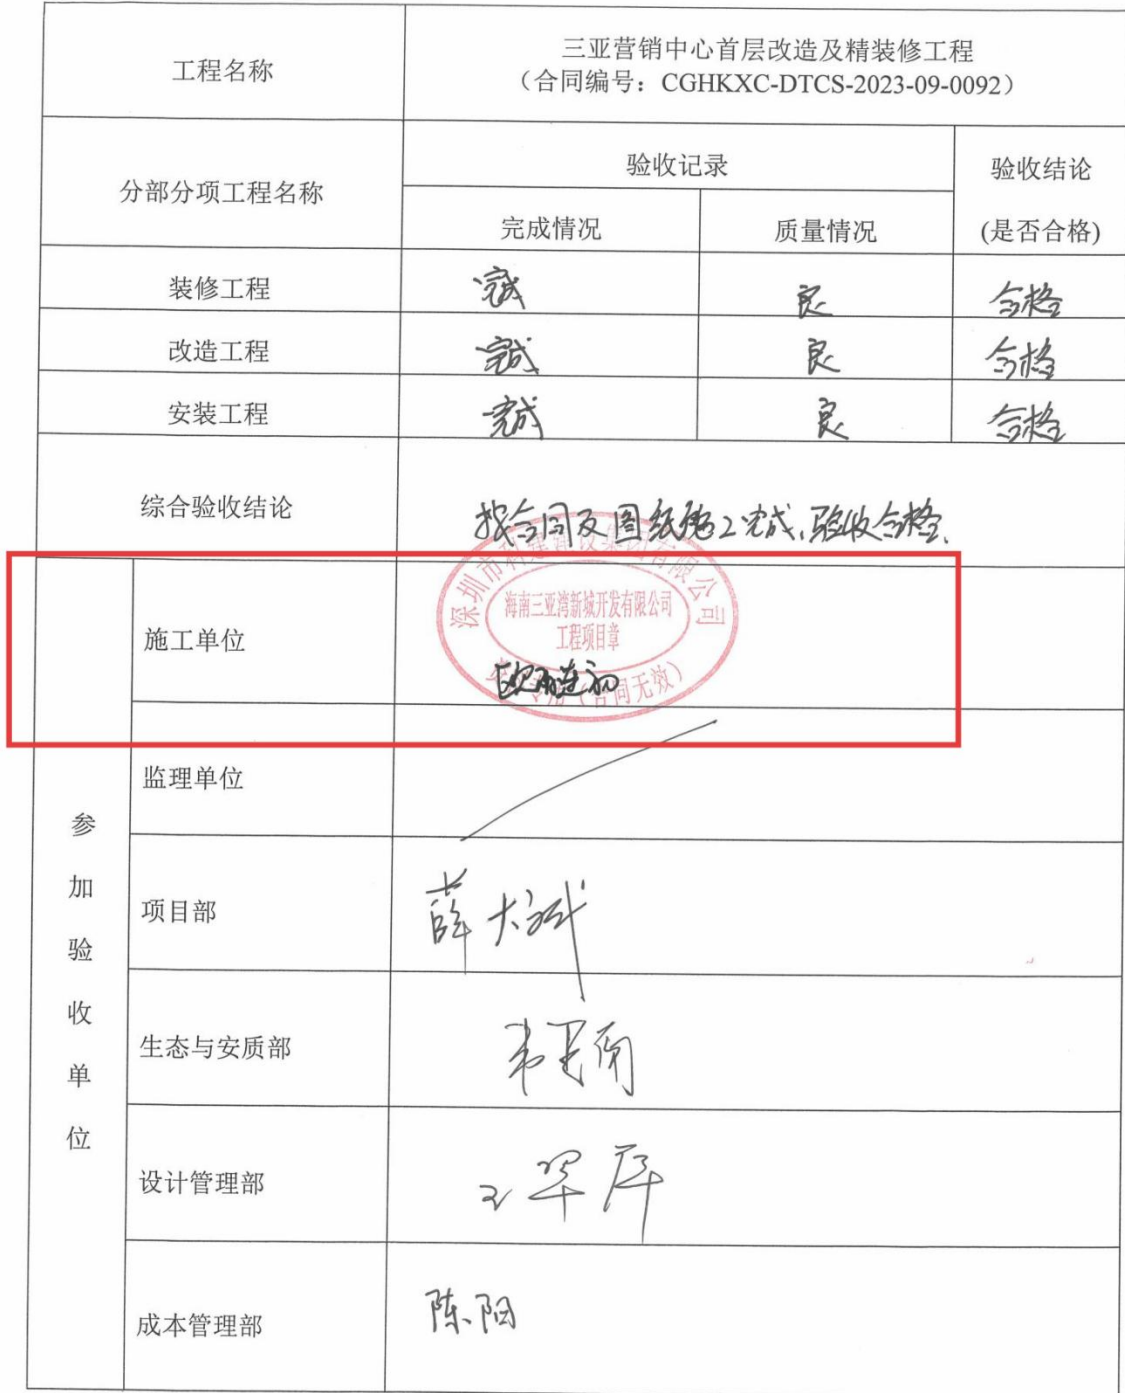 工程名称
三亚营销中心首层改造及精装修工程
（合同编号：CGHKXC-DTCS-2023-09-0092）
分部分项工程名称
验收记录
验收结论
(是否合格)
完成情况
质量情况
装修工程
完成
良
合格
改造工程
完成
良
合格
安装工程
完成
良
合格
综合验收结论
按合同及图纸施工完成，验收合格.
参加验收单位
施工单位
深圳市科建建设集团有限公司
海南三亚湾新城开发有限公司
工程项目章
（合同无效）
监理单位
项目部
薛大斌
生态与安质部
设计管理部
成本管理部
陈阳